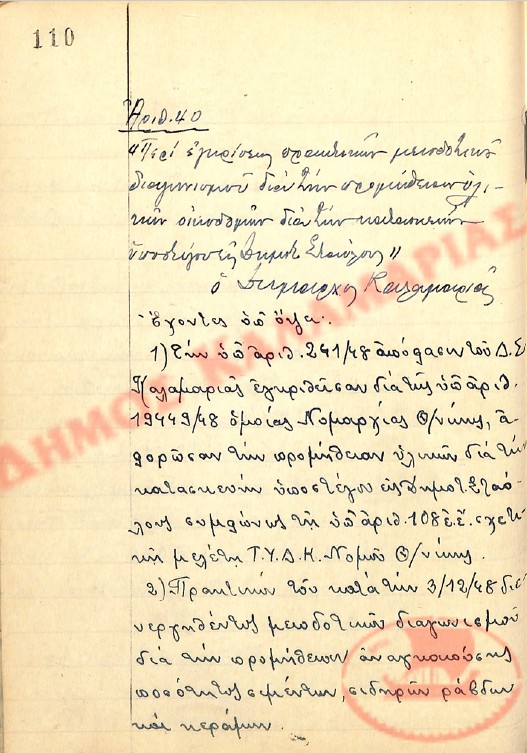 110
Ἀριθ. 40
"Περί ἐγκρίσεως πρακτικῶν μειοδοτικοῦ
διαγωνισμοῦ διά τήν προμήθειαν ὑλι-
κῶν οἰκοδομῶν διά τήν κατασκευήν
ὑποστέγου εἰς Δημοτ. Σταύλους"
ὁ Δήμαρχος Καλαμαριᾶς
Ἔχοντες ὑπ' ὄψει.
1) Τήν ὑπ' ἀριθ. 241/48 ἀπόφασιν τοῦ Δ.Σ
Καλαμαριᾶς ἐγκριθεῖσαν διά τῆς ὑπ' ἀριθ.
19449/48 ὁμοίας Νομαρχίας Θ/νίκης, ἀ-
φορῶσαν τήν προμήθειαν ὑλικῶν διά τήν
κατασκευήν ὑποστέγου εἰς Δημοτ. Σταύ-
λους συμφώνως τῇ ὑπ' ἀριθ. 108 ἐ.ἔ. σχετι-
κῇ μελέτῃ Τ.Υ.Δ.Κ. Νομοῦ Θ/νίκης.
2) Πρακτικόν τοῦ κατά τήν 3/12/48 διε-
νεργηθέντος μειοδοτικοῦ διαγωνισμοῦ
διά τήν προμήθειαν ἀναγκαιούσης
ποσότητος σιμέντων, σιδηρῶν ράβδων
καί κεράμων.
ΔΗΜΟΣ ΚΑΛΑΜΑΡΙΑΣ